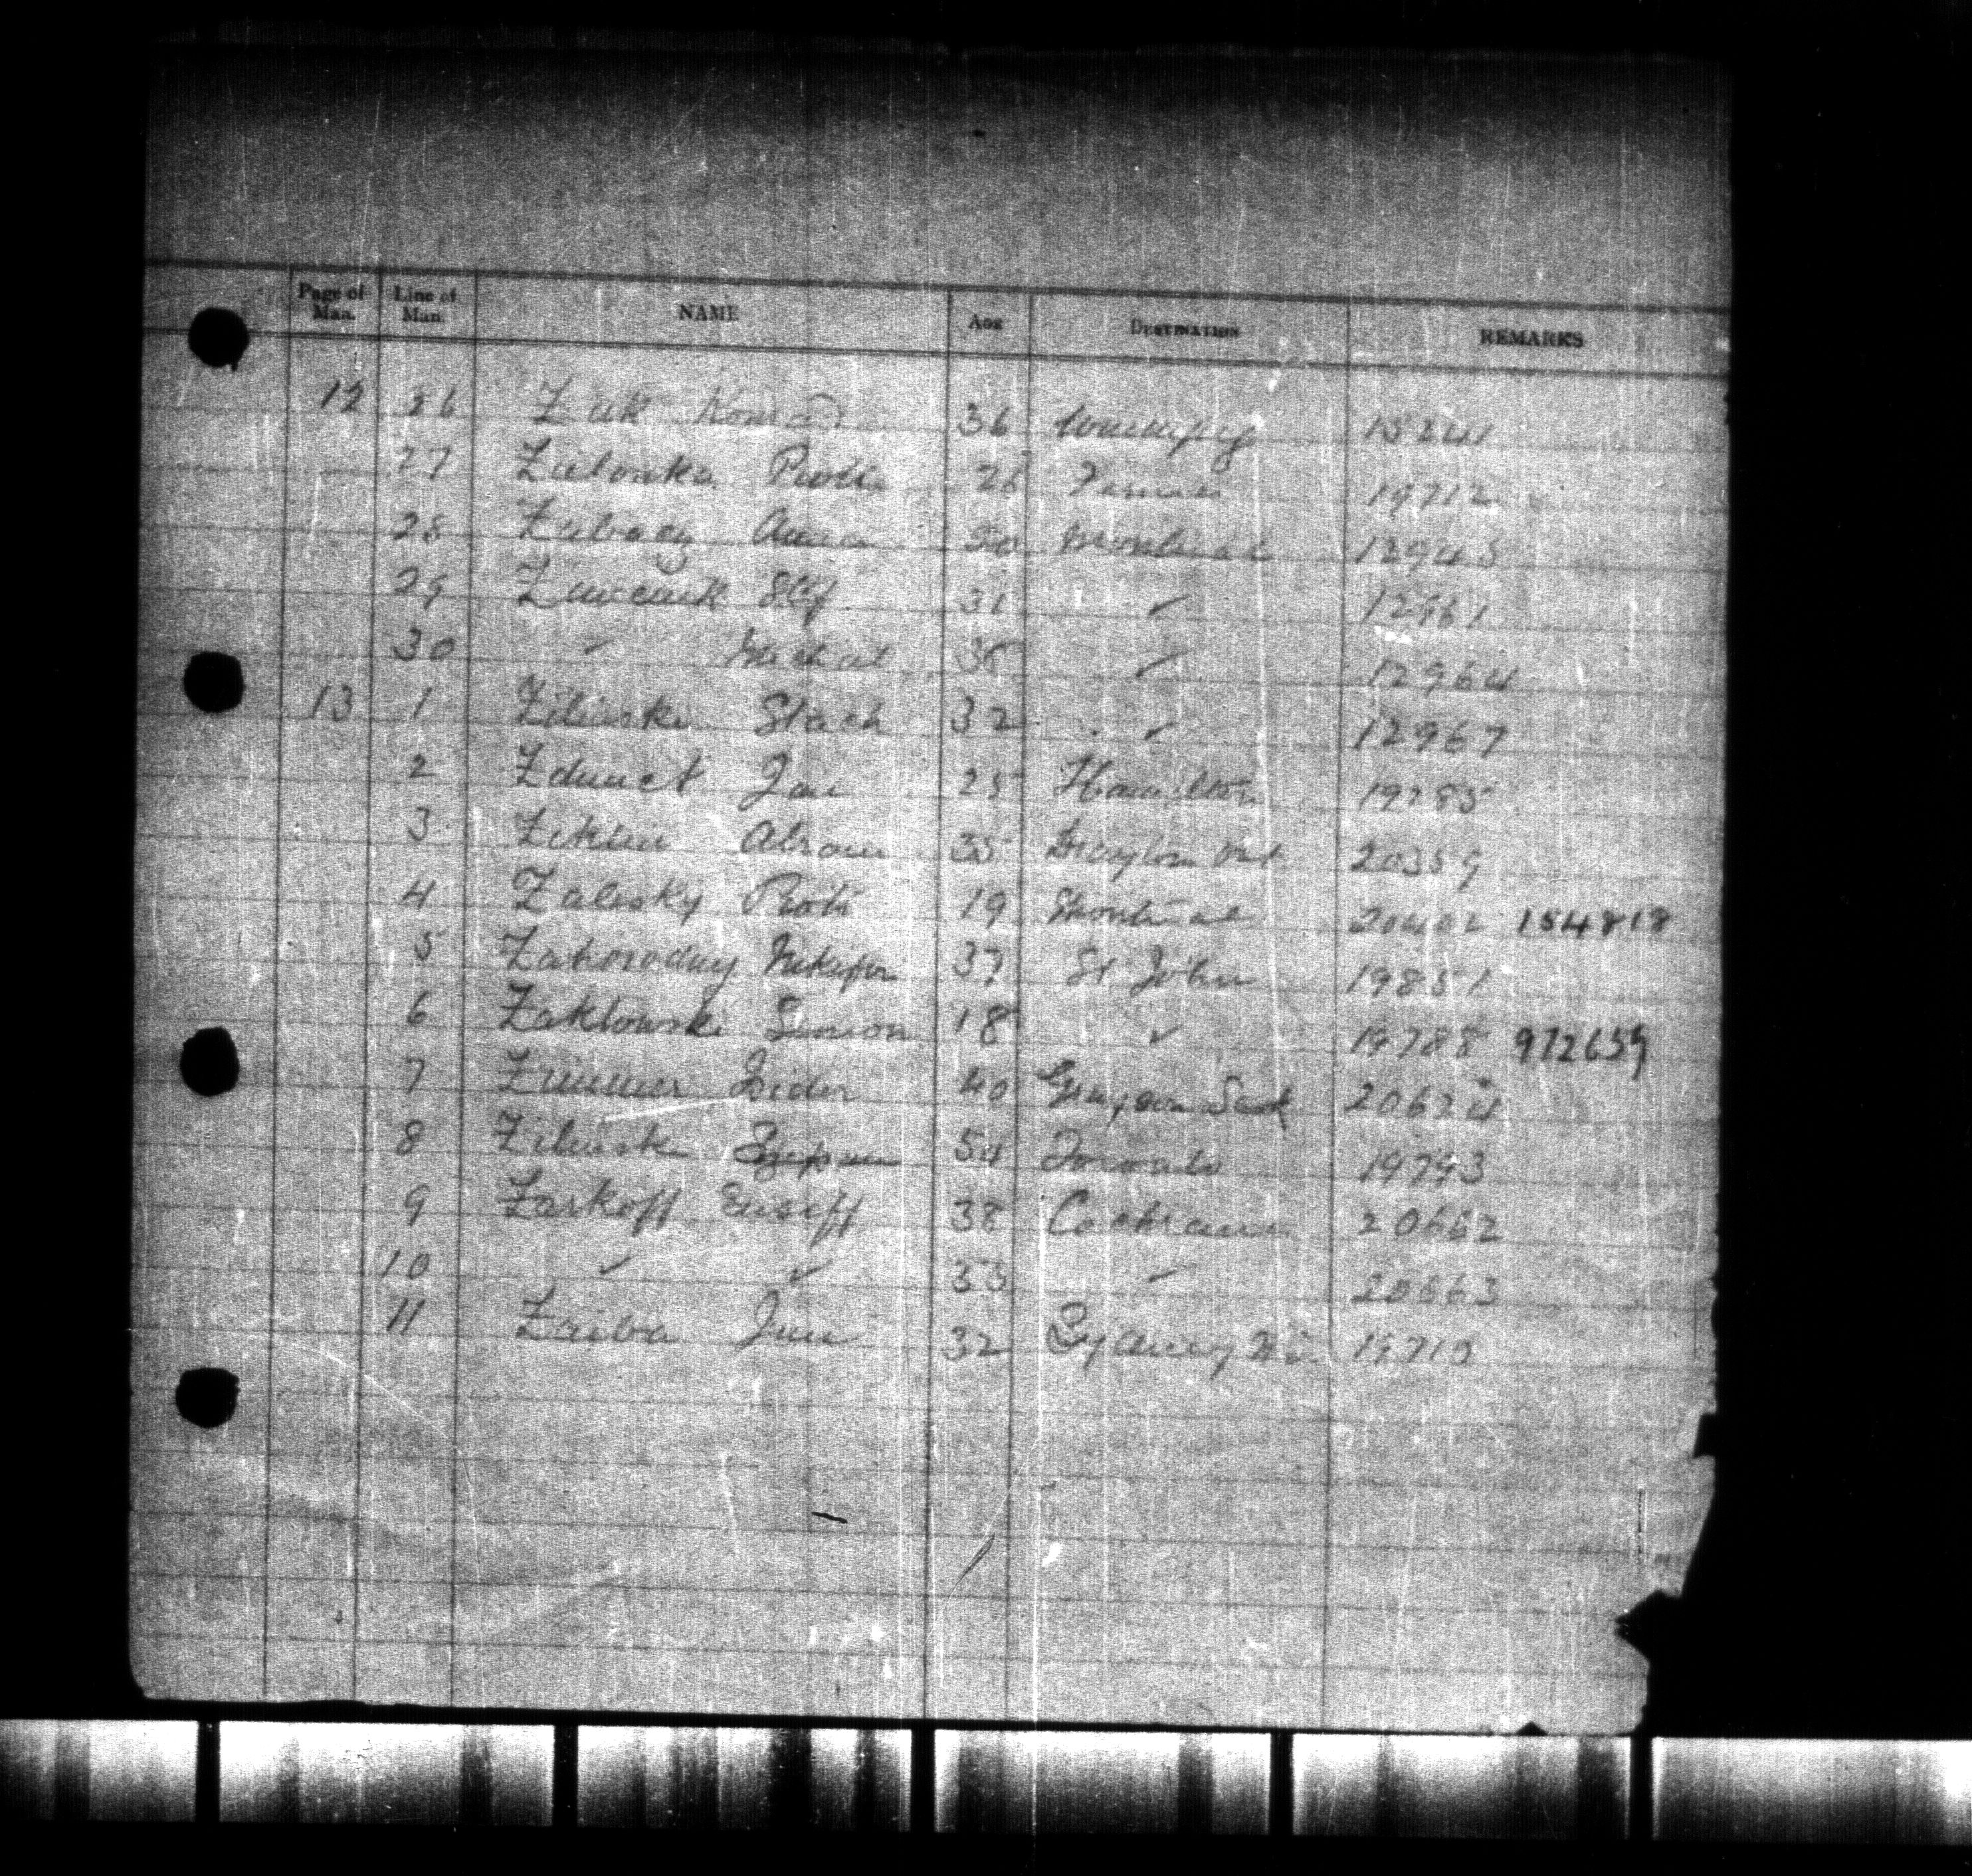 Page of Man. Line of Man. NAME AGE DESTINATION REMARKS
12 26 Zuk Konrad 36 Winnipeg
27 Zielonka Piotr 26 19712
28 Zubocy Anna 20 Montreal 12945
29 Zawciuk 31 ✓ 12961
30 " Michal ✓ 12964
13 1 Zilinski Stach 32 ✓ 12967
2 Zdunct Jan 25 Hamilton 19785
3 35 Ont 20359
4 Zalesky Piotr 19 Montreal 20402 154818
5 Zahorodny Nikifor 37 St John 19851
6 Zaklowski Simion 18 ✓ 19788 972659
7 Zimmer Isidor 40 Grayson Sask 20624
8 Zilinski 54 Toronto 19793
9 Zarkoff Eusiff 38 Cochrane 20662
10 ✓ ✓ 33 ✓ 20663
11 Zaiba Jan 32 Sydney